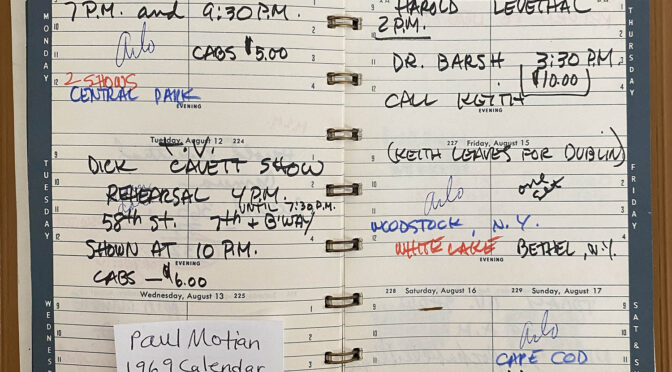 7 P.M. and 9:30 P.M.
Arlo
CABS $5.00
2 SHOWS
CENTRAL PARK
EVENING
MONDAY
9
10
11
12
Tuesday, August 12 224
T.V.
DICK CAVETT SHOW
REHEARSAL 4 P.M.
UNTIL 7:30 P.M.
58th St. 7th + B'WAY
SHOWN AT 10 P.M.
EVENING
CABS — $6.00
TUESDAY
Wednesday, August 13 225
WEDNES
Paul Motian
1969 Calendar
HAROLD LEVETHAL
2 P.M.
DR. BARSH 3:30 P.M.
$10.00
CALL KEITH
EVENING
THURSDAY
227 Friday, August 15
(KEITH LEAVES FOR DUBLIN)
Arlo
one set
WOODSTOCK, N.Y.
WHITE LAKE BETHEL, N.Y.
EVENING
FRIDAY
228 Saturday, August 16 229 Sunday, August 17
Arlo
CAPE COD
SAT & S